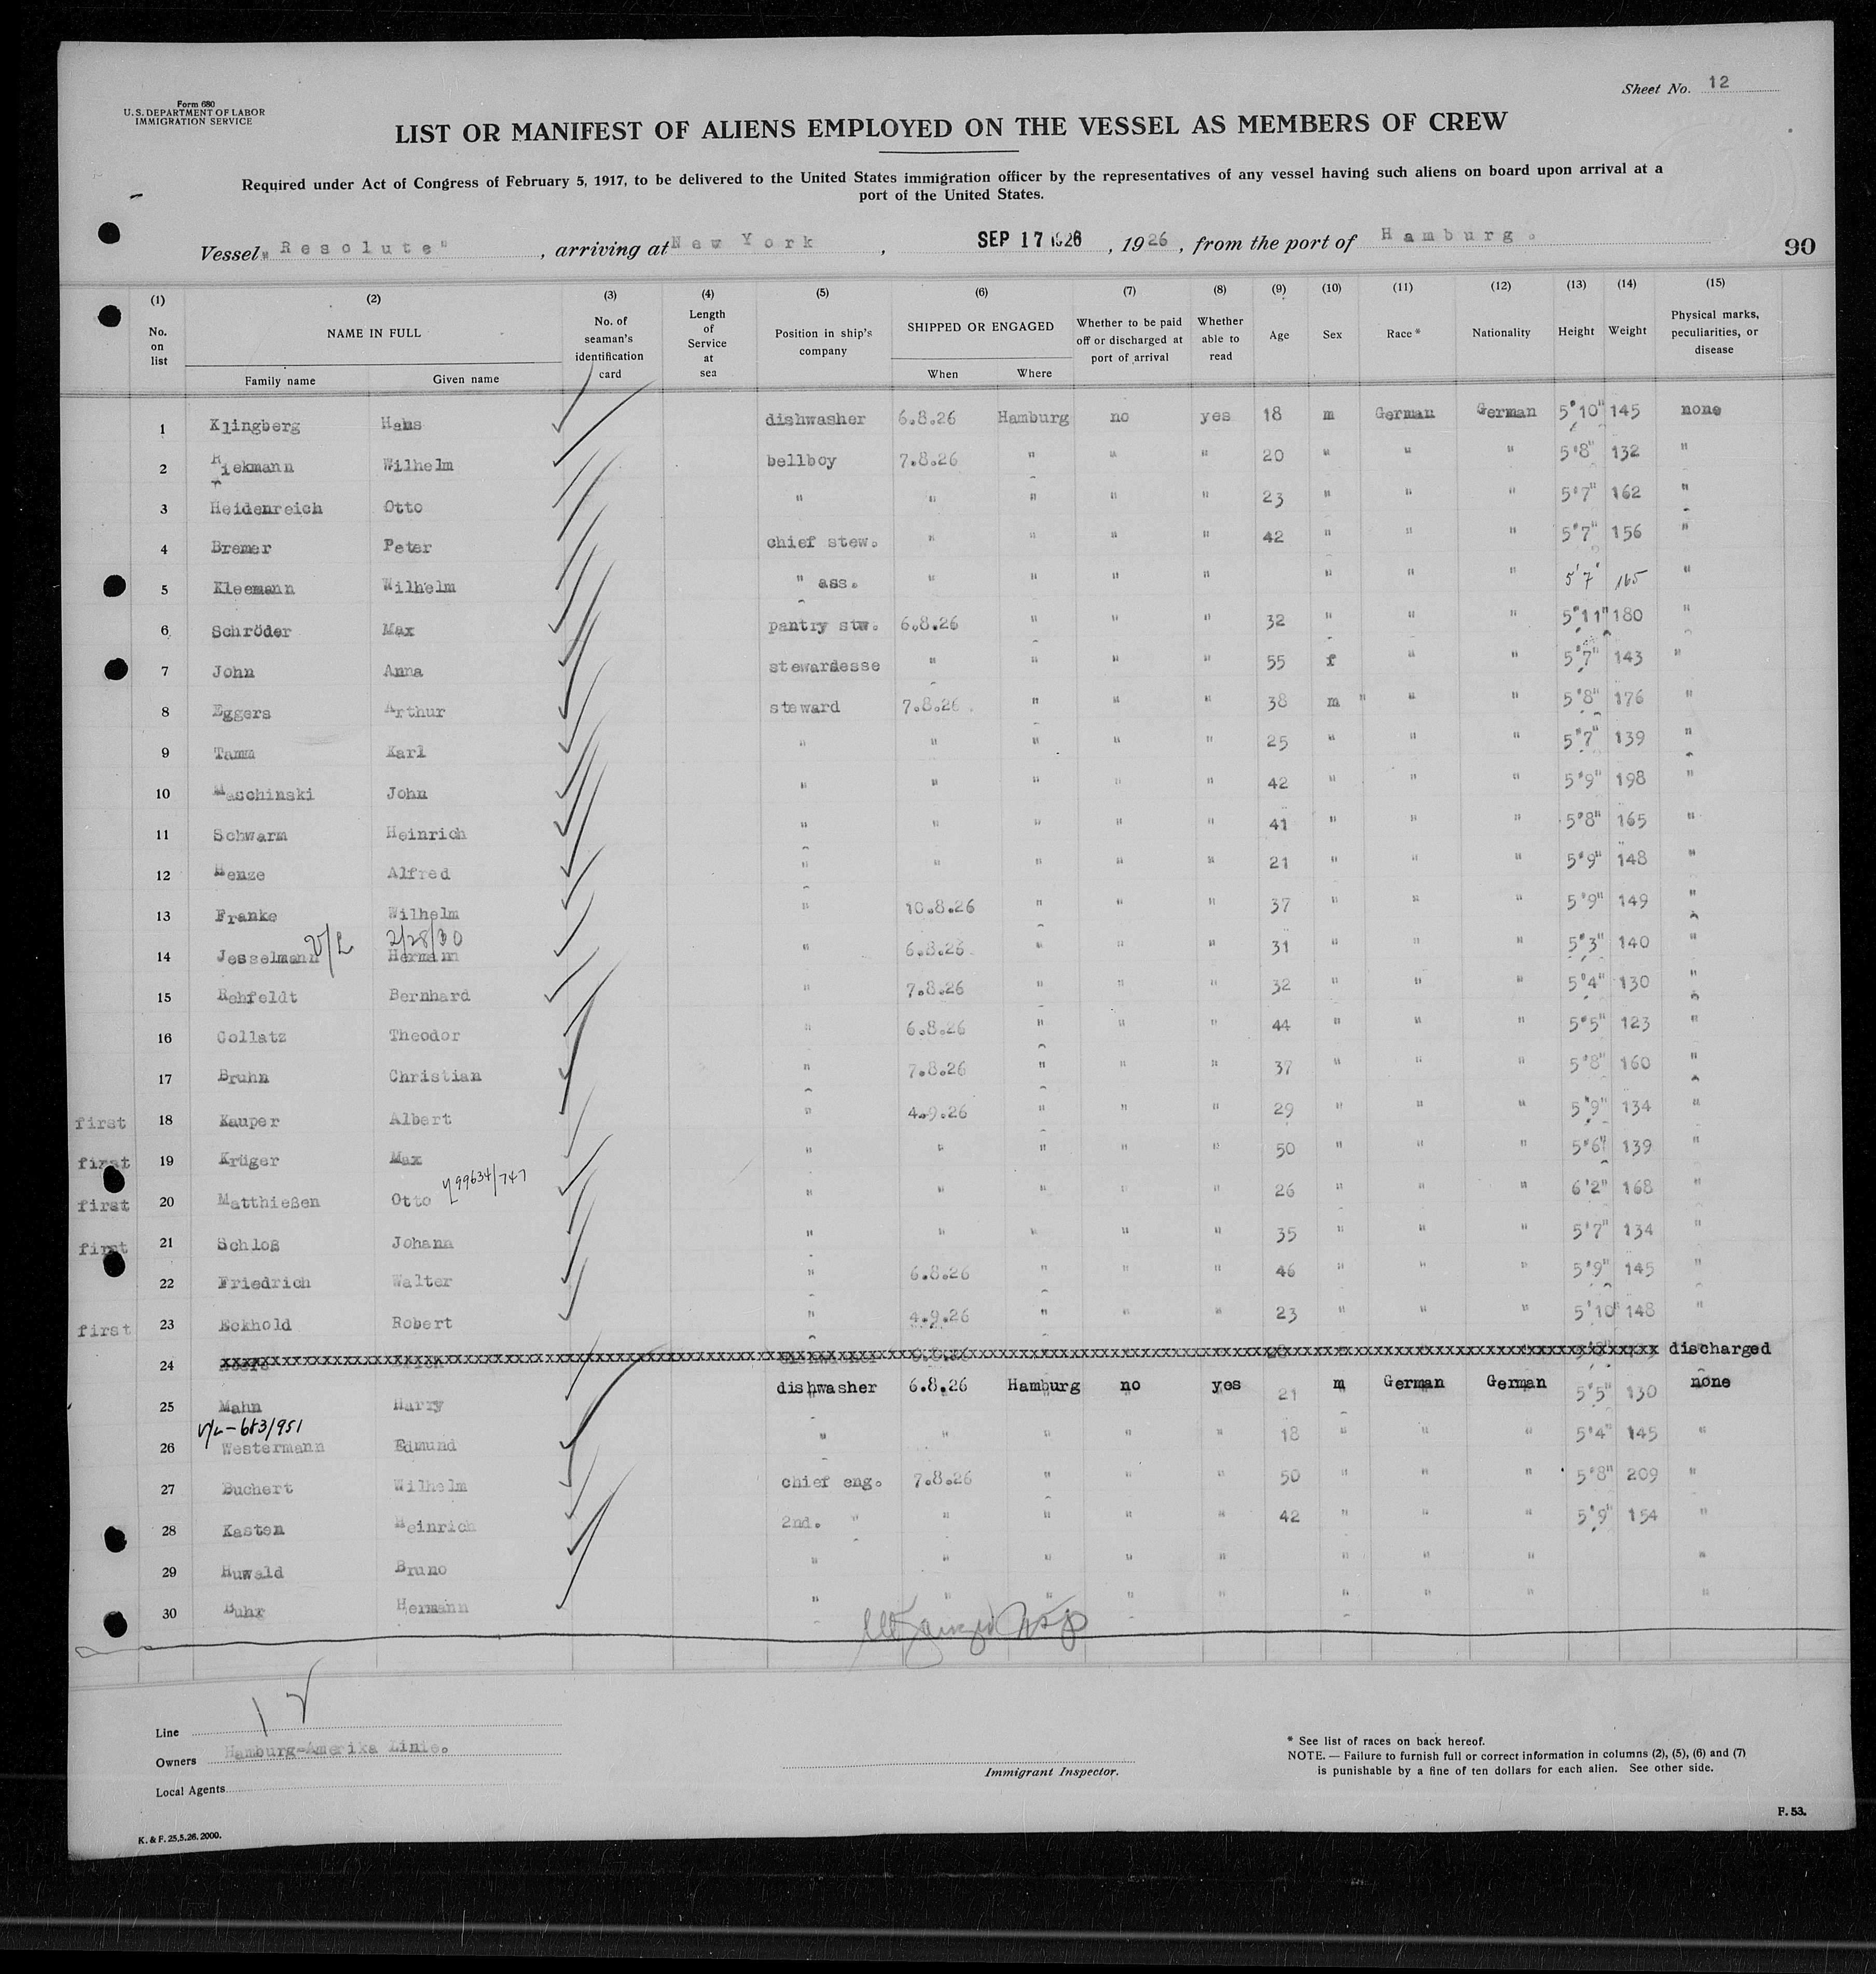 Form 680
U. S. DEPARTMENT OF LABOR
IMMIGRATION SERVICE
Sheet No. 12
LIST OR MANIFEST OF ALIENS EMPLOYED ON THE VESSEL AS MEMBERS OF CREW
Required under Act of Congress of February 5, 1917, to be delivered to the United States immigration officer by the representatives of any vessel having such aliens on board upon arrival at a
port of the United States.
Vessel "Resolute" , arriving at New York , SEP 17 1926 , 1926 , from the port of Hamburg.
90
(1) (2) (3) (4) (5) (6) (7) (8) (9) (10) (11) (12) (13) (14) (15)
No. on list NAME IN FULL Family name Given name No. of seaman's identification card Length of Service at sea Position in ship's company SHIPPED OR ENGAGED When Where Whether to be paid off or discharged at port of arrival Whether able to read Age Sex Race * Nationality Height Weight Physical marks, peculiarities, or disease
1 Klingberg Hans dishwasher 6.8.26 Hamburg no yes 18 m German German 5'10" 145 none
2 Riekmann Wilhelm bellboy 7.8.26 " " " 20 " " " 5'8" 132 "
3 Heidenreich Otto " " " " " 23 " " " 5'7" 162 "
4 Bremer Peter chief stew. " " " " 42 " " " 5'7" 156 "
5 Kleemann Wilhelm " ass. " " " " " " " 5'7' 165 "
6 Schröder Max pantry stw. 6.8.26 " " " 32 " " " 5'11" 180 "
7 John Anna stewardesse " " " " 55 f " " 5'7" 143 "
8 Eggers Arthur steward 7.8.26 " " " 38 m " " " 5'8" 176 "
9 Tamm Karl " " " " " 25 " " " 5'7" 139 "
10 Maschinski John " " " " " 42 " " " 5'9" 198 "
11 Schwarm Heinrich " " " " " 41 " " " 5'8" 165 "
12 Henze Alfred " " " " " 21 " " " 5'9" 148 "
13 Franke Wilhelm " 10.8.26 " " " 37 " " " 5'9" 149 "
V/L 2/28/30
14 Jesselmann Hermann " 6.8.26 " " " 31 " " " 5'3" 140 "
15 Rehfeldt Bernhard " 7.8.26 " " " 32 " " " 5'4" 130 "
16 Collatz Theodor " 6.8.26 " " " 44 " " " 5'5" 123 "
17 Bruhn Christian " 7.8.26 " " " 37 " " " 5'8" 160 "
first 18 Kauper Albert " 4.9.26 " " " 29 " " " 5'9" 134 "
first 19 Krüger Max " " " " " 50 " " " 5'6" 139 "
99634/747
first 20 Matthießen Otto " " " " " 26 " " " 6'2" 168 "
first 21 Schloß Johann " " " " " 35 " " " 5'7" 134 "
22 Friedrich Walter " 6.8.26 " " " 46 " " " 5'9" 145 "
first 23 Eckhold Robert " 4.9.26 " " " 23 " " " 5'10" 148 "
24 discharged
25 Mahn Harry dishwasher 6.8.26 Hamburg no yes 21 m German German 5'5" 130 none
V/L-683/951
26 Westermann Edmund " " " " " 18 " " " 5'4" 145 "
27 Buchert Wilhelm chief eng. 7.8.26 " " " 50 " " " 5'8" 209 "
28 Kasten Heinrich 2nd. " " " " " 42 " " " 5'9" 154 "
29 Huwald Bruno " " " " " " " " "
30 Buhr Hermann " " " " " " " " "
Line
Owners Hamburg-Amerika Linie.
Local Agents
Immigrant Inspector.
* See list of races on back hereof.
NOTE. — Failure to furnish full or correct information in columns (2), (5), (6) and (7)
is punishable by a fine of ten dollars for each alien. See other side.
F. 53.
K. & F. 25.5.26. 2000.